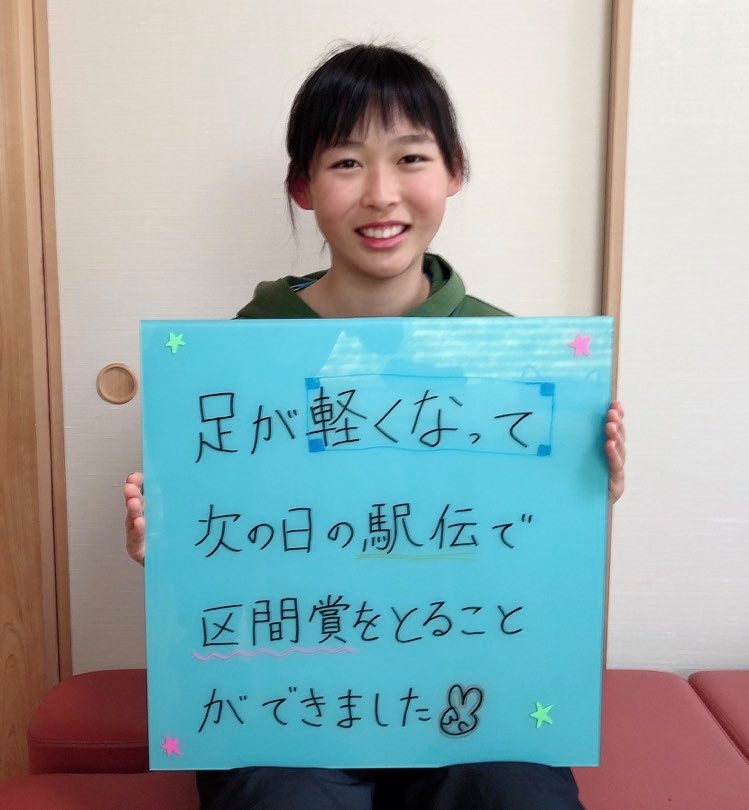 足が軽くなって
次の日の駅伝で
区間賞をとること
ができました